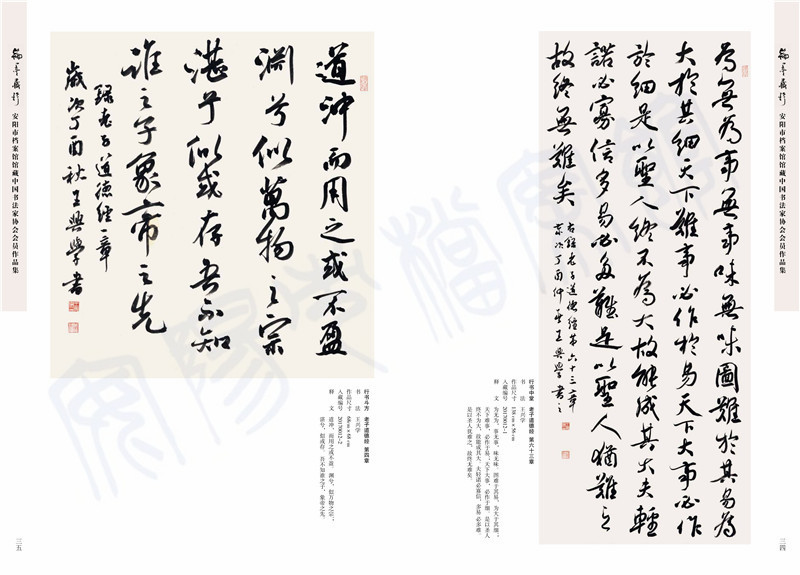 安阳市档案馆馆藏中国书法家协会会员作品集
為無為事無事味無味圖難於其易為
大於其細天下難事必作於易天下大事必作
於細是以聖人終不為大故能成其大夫輕
諾必寡信多易必多難是以聖人猶難之
故終無難矣
右錄老子道德經第六十三章
次丁酉仲夏王興學書之
行书中堂 老子道德经 第六十三章
书 法 王兴学
作品尺寸 138 cm×56 cm
入藏编号 20170012-1
释 文 为无为，事无事，味无味。图难于其易，为大于其细；
天下难事，必作于易；天下大事，必作于细。是以圣人
终不为大，故能成其大。夫轻诺必寡信，多易 必多难，
是以圣人犹难之，故终无难矣。
三四
道沖而用之或不盈
淵兮似萬物之宗
湛兮似或存吾不知
誰之子象帝之先
録老子道德經一章
歲次丁酉秋王興學書
行书斗方 老子道德经 第四章
书 法 王兴学
作品尺寸 68 cm×68 cm
入藏编号 20170012-2
释 文 道冲，而用之或不盈。渊兮，似万物之宗；
湛兮，似或存。吾不知谁之子，象帝之先。
安阳市档案馆馆藏中国书法家协会会员作品集
三五